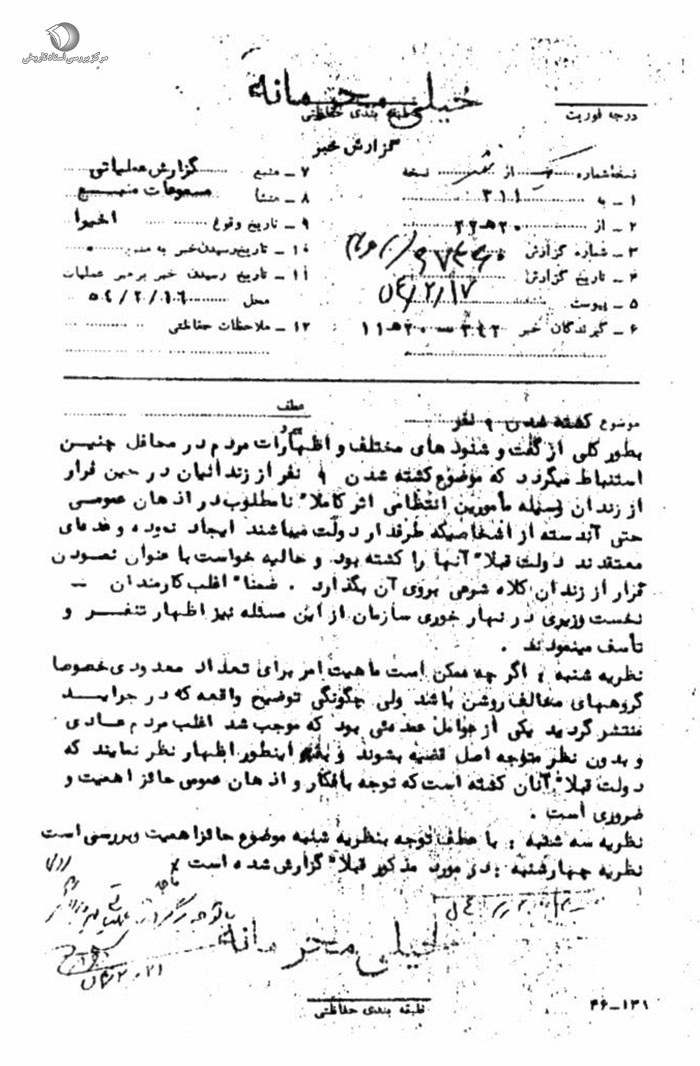 مرکز بررسی اسناد تاریخی
خیلی محرمانه
طبقه بندی حفاظتی
درجه فوریت
گزارش خبر
نسخه شماره از نسخه
۱ ـ به ۳۱۱
۲ ـ از ۲۰هـ۲۲
۳ ـ شماره گزارش
۴ ـ تاریخ گزارش ۵۴/۲/۱۷
۵ ـ پیوست
۶ ـ گیرندگان خبر ۳۴۲ ـ ۲۰هـ۱۱
۷ ـ منبع گزارش عملیاتی
۸ ـ منشأ مسموعات منبع
۹ ـ تاریخ وقوع اخیرا
۱۰ ـ تاریخ رسیدن خبر به منبع
۱۱ ـ تاریخ رسیدن خبر برهبر عملیات
محل ۵۴/۲/۱۶
۱۲ ـ ملاحظات حفاظتی
موضوع کشته شدن ۹ نفر
عطف
پیرو
بطور کلی از گفت و شنودهای مختلف و اظهارات مردم در محافل چنین
استنباط میگردد که موضوع کشته شدن ۹ نفر از زندانیان در حین فرار
از زندان بوسیله مأمورین انتظامی اثر کاملا" نامطلوب در اذهان عمومی
حتی آندسته از اشخاصیکه طرفدار دولت میباشند ایجاد نموده و عدهای
معتقدند دولت قبلا" آنها را کشته بود و حالیه خواست با عنوان نمودن
فرار از زندان کلاه شرعی بروی آن بگذارد . ضمنا" اغلب کارمندان ـ
نخست وزیری در نهار خوری سازمان از این مسئله نیز اظهار تنفر و
تأسف مینمودند .
نظریه شنبه : اگر چه ممکن است ماهیت امر برای تعداد معدودی خصوصا
گروههای مخالف روشن باشد ولی چگونگی توضیح واقعه که در جراید
منتشر گردید یکی از عوامل عمدهئی بود که موجب شد اغلب مردم عادی
و بدون نظر متوجه اصل قضیه بشوند و اینطور اظهار نظر نمایند که
دولت قبلا" آنان کشته است که توجه بافکار و اذهان عمومی حائز اهمیت و
ضروری است .
نظریه سه شنبه : با عطف توجه بنظریه شنبه موضوع حائز اهمیت و بررسی است
نظریه چهارشنبه : در مورد مذکور قبلا" گزارش شده است
با توجه
خیلی محرمانه
۵۴/۲/۲۱
طبقه بندی حفاظتی
۴۶ـ۱۳۱